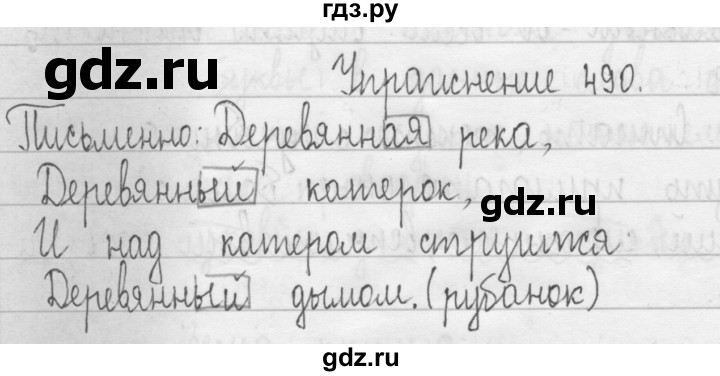 гдз.ру
gdz.ru
Упражнение 490.
Письменно: Деревянная река,
Деревянный катерок,
gdz.ru
И над катером струится
Деревянный дымом. (рубанок)
gdz.ru